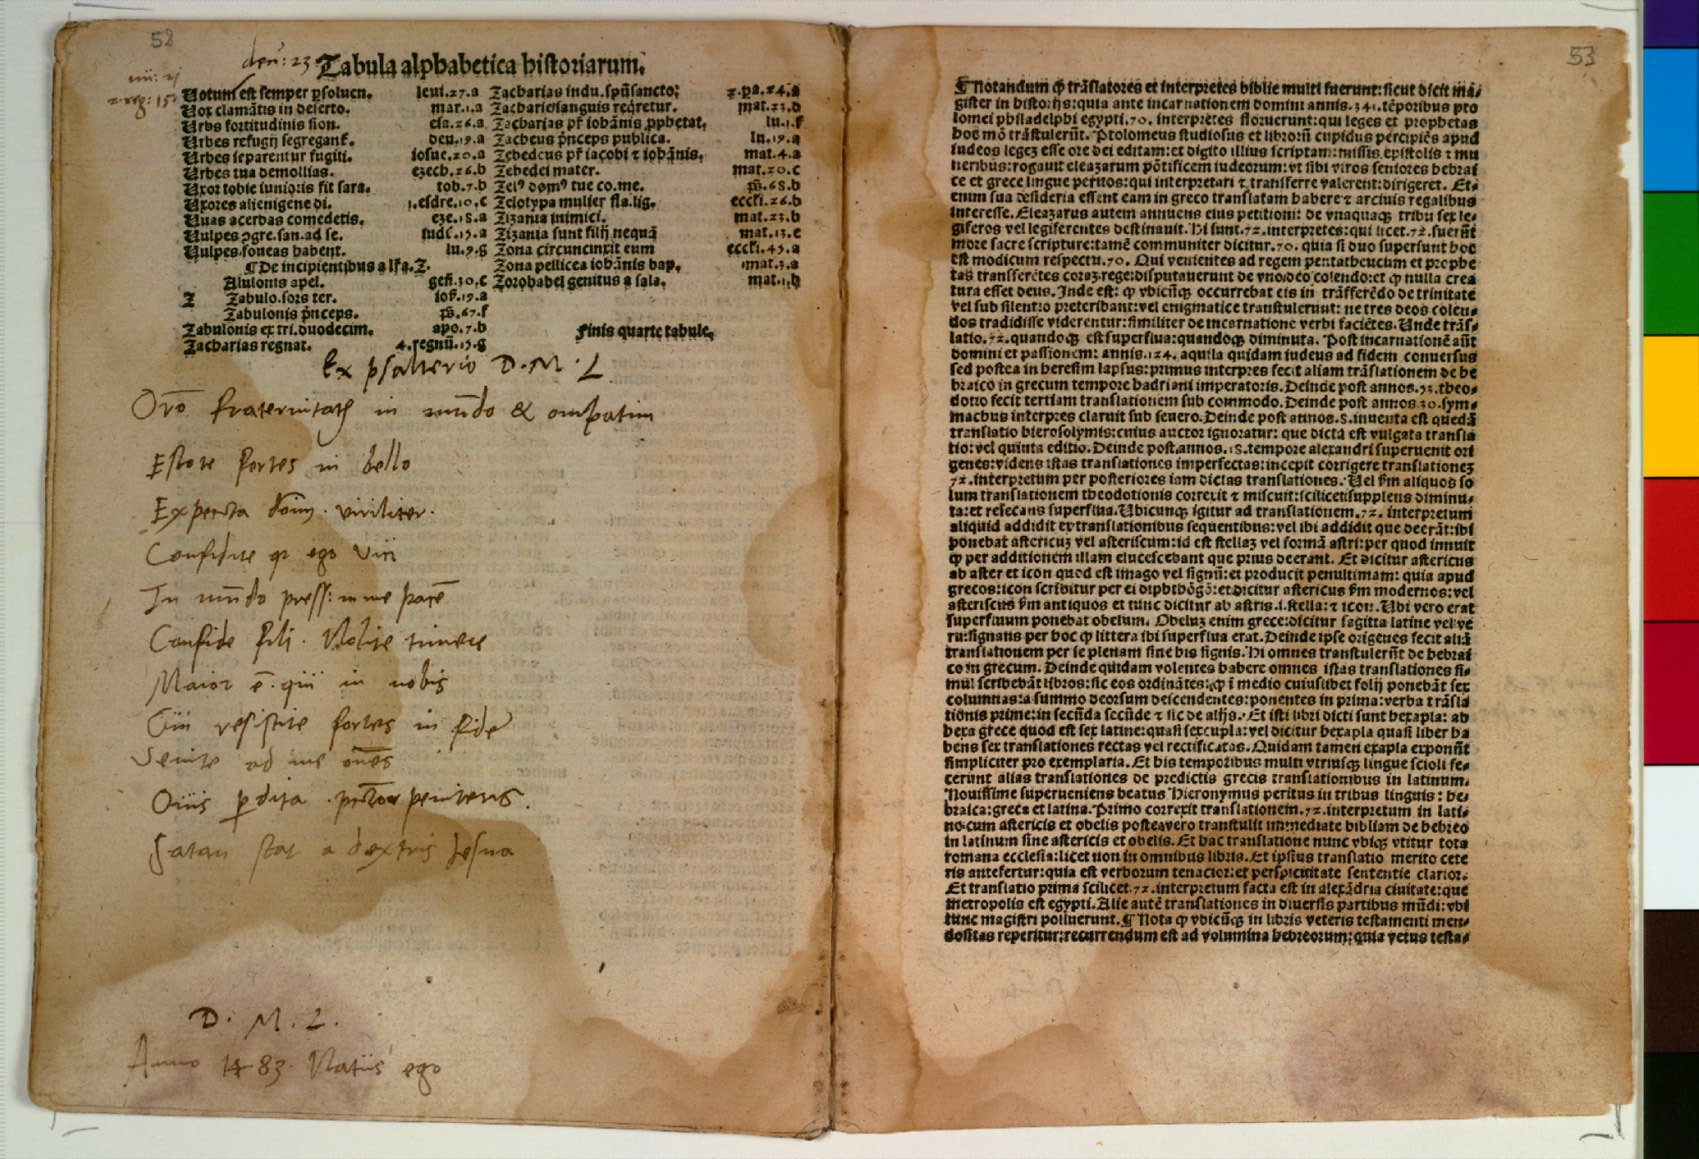 52
53
deu: 23
Tabula alphabetica historiarum.
Votum est semper ꝑsoluen. leui.27.a
Vox clamãtis in deserto. mar.1.a
Vrbs fortitudinis sion. esa.26.a
Vrbes refugij segregant᷑. deu.19.a
Vrbes separentur fugiti. iosue.20.a
Vrbes tua demollias. ezech.26.b
Vxor tobie iunioris fit sara. tob.7.b
Vxores alienigene di. 3.esdre.10.c
Vuas acerbas comedetis. eze.18.a
Vulpes ↄgre.san.ad se. iudic.15.a
Vulpes foueas habent. lu.9.g
¶ De incipientibus a lr̃a.Z.
Abulonis apel. gen̄.30.c
Z Zabulo.sors ter. ios̄.19.a
Zabulonis p̃nceps. ps̄.67.f
Zabulonis ex tri.duodecim. apo.7.b
Zacharias regnat. 4.regnũ.15.g
Zacharias indu.spũsancto: 2.pa.24.a
Zacharie sanguis req̃retur. mat.23.d
Zacharias pr̃ iohãnis ꝓphetat. lu.1.f
Zacheus p̃nceps publica. lu.19.a
Zebedeus pr̃ iacobi ⁊ iohãnis. mat.4.a
Zebedei mater. mat.20.c
Zelꝰ domꝰ tue co.me. ps̄.68.b
Zelotypa mulier fla.lig. eccľi.26.b
Zizania inimici. mat.13.b
Zizania sunt filij nequã mat.13.e
Zona circuncinxit eum eccľi.45.a
Zona pellicea iohãnis bap. mat.3.a
Zorobabel genitus a sala. mat.1.b
Finis quarte tabule.
Ex psalterio D. M. L
fraternitatẽ in mũdo &
Estote fortes in bello
Expecta dom̃. viriliter.
Confidite qꝛ ego vici
In mũdo press: in me pacẽ
Confide fili. Nolite timere
Maior ẽ. qui in nobis
Cui resistite fortes in fide
Venite ad me om̃es
Ouis ꝑdita . penitens.
Satan stat a dextris Jesua
D. M. L.
Anno 1483 Natus ego
¶ Notandum ꝙ trãslatores et interpretes biblie multi fuerunt: sicut dicit ma-
gister in historijs: quia ante incarnationem domini annis.341.tẽporibus pto
lomei philadelphi egypti.70. interpretes floruerunt: qui leges et prophetas
hoc mõ trãstulerũt. Ptolomeus studiosus et librorũ cupidus percipiẽs apud
iudeos legez esse ore dei editam: et digito illius scriptam: missis epistolis ⁊ mu
neribus: rogauit eleazarum põtificem iudeorum: vt sibi viros seniores hebrai
ce et grece lingue peritos: qui interpretari ⁊ transferre valerent: dirigeret. Et-
enim sua desideria essent eam in greco translatam habere ⁊ arciuis regalibus
interesse. Eleazarus autem annuens eius petitioni: de vnaquaqꝫ tribu sex le-
giferos vel legiferentes destinauit. Hi sunt.72.interpretes: qui licet.72.fuerũt
more sacre scripture: tamẽ communiter dicitur.70. quia si duo supersunt hoc
est modicum respectu.70. Qui venientes ad regem pentatheucum et prophe
tas transferẽtes coraz rege: disputauerunt de vno deo colendo: et ꝙ nulla crea
tura esset deus. Inde est: ꝙ vbicũqꝫ occurrebat eis in trãsferẽdo de trinitate
vel sub silentio preteribant: vel enigmatice transtulerunt: ne tres deos colen-
dos tradidisse viderentur: similiter de incarnatione verbi faciẽtes. Unde trãs-
latio.72.quandoqꝫ est superflua: quandoqꝫ diminuta. Post incarnationẽ aũt
domini et passionem: annis.124. aquila quidam iudeus ad fidem conuersus
sed postea in heresim lapsus: primus interpres fecit aliam trãslationem de he
braico in grecum tempore hadriani imperatoris. Deinde post annos.53.theo-
dotio fecit tertiam translationem sub commodo. Deinde post annos.30.sym-
machus interpres claruit sub seuero. Deinde post annos.8.inuenta est quedã
translatio hierosolymis: cuius auctor ignoratur: que dicta est vulgata transla
tio: vel quinta editio. Deinde post.annos.18.tempore alexandri superuenit ori
genes: videns istas translationes imperfectas: incepit corrigere translationez
72.interpretum per posteriores iam dictas translationes. Vel ẜm aliquos so
lum translationem theodotionis correxit ⁊ miscuit: scilicet supplens diminu-
ta: et resecans superflua. Ubicunqꝫ igitur ad translationem.72. interpretum
aliquid addidit ex translationibus sequentibus: vel ibi addidit que deerãt: ibi
ponebat astericuz vel asteriscum: id est stellaz vel formã astri: per quod innuit
ꝙ per additionem illam elucescebant que prius deerant. Et dicitur astericus
ab aster et icon quod est imago vel signũ: et producit penultimam: quia apud
grecos: icon scribitur per ei diphthõgõ: et dicitur astericus ẜm modernos: vel
asteriscus ẜm antiquos et tunc dicitur ab astris.i.stella: ⁊ icon. Ubi vero erat
superfluum ponebat obelum. Obeluz enim grece: dicitur sagitta latine vel ve
ru: signans per hoc ꝙ littera ibi superflua erat. Deinde ipse origenes fecit aliã
translationem per se plenam sine his signis. Hi omnes transtulerũt de hebrai
co in grecum. Deinde quidam volentes habere omnes istas translationes si-
mul scribebãt libros: sic eos ordinãtes: ꝙ ĩ medio cuiuslibet folij ponebãt sex
columnas: a summo deorsum descendentes: ponentes in prima: verba trãsla
tionis prime: in secũda secũde ⁊ sic de alijs. Et isti libri dicti sunt hexapla: ab
hexa grece quod est sex latine: quasi sexcupla: vel dicitur hexapla quasi liber ha
bens sex translationes rectas vel rectificatas. Quidam tamen exapla exponũt
simpliciter pro exemplaria. Et his temporibus multi vtriusqꝫ lingue scioli fe-
cerunt alias translationes de predictis grecis translationibus in latinum.
Nouissime superueniens beatus Hieronymus peritus in tribus linguis: he-
braica: greca et latina. Primo correxit translationem.72.interpretum in lati-
no: cum astericis et obelis postea vero transtulit immediate bibliam de hebreo
in latinum sine astericis et obelis. Et hac translatione nunc vbiqꝫ vtitur tota
romana ecclesia: licet non in omnibus libris. Et ipsius translatio merito cete
ris antefertur: quia est verborum tenacior: et perspicuitate sententie clarior.
Et translatio prima scilicet.72.interpretum facta est in alexãdria ciuitate: que
metropolis est egypti. Alie autẽ translationes in diuersis partibus mũdi: vbi
tunc magistri polluerunt. ¶ Nota ꝙ vbicũqꝫ in libris veteris testamenti men-
dositas reperitur: recurrendum est ad volumina hebreorum: quia vetus testa-